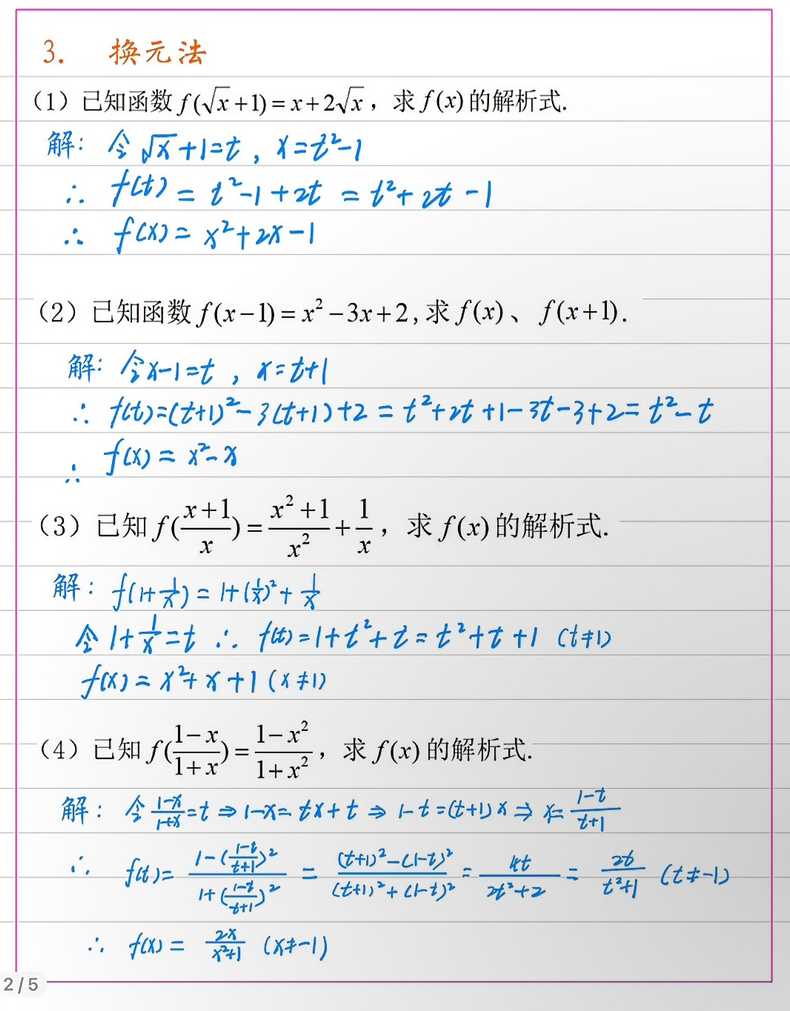 3. 换元法
（1）已知函数 f(√x+1)=x+2√x，求 f(x) 的解析式.
解：令 √x+1=t，x=t²-1
∴ f(t) = t²-1+2t = t²+2t-1
∴ f(x) = x²+2x-1
（2）已知函数 f(x-1)=x²-3x+2,求 f(x)、f(x+1).
解：令x-1=t，x=t+1
∴ f(t)=(t+1)²-3(t+1)+2 = t²+2t+1-3t-3+2= t²-t
∴ f(x) = x²-x
（3）已知 f((x+1)/x)=(x²+1)/x²+1/x，求 f(x) 的解析式.
解：f(1+1/x) = 1+(1/x)²+1/x
令 1+1/x=t ∴ f(t)=1+t²+t=t²+t+1 (t≠1)
f(x) = x²+x+1 (x≠1)
（4）已知 f((1-x)/(1+x))=(1-x²)/(1+x²)，求 f(x) 的解析式.
解：令 (1-x)/(1+x)=t ⇒ 1-x=tx+t ⇒ 1-t=(t+1)x ⇒ x=(1-t)/(t+1)
∴ f(t)= (1-((1-t)/(t+1))²)/(1+((1-t)/(t+1))²) = ((t+1)²-(1-t)²)/((t+1)²+(1-t)²) = 4t/(2t²+2) = 2t/(t²+1) (t≠-1)
∴ f(x) = 2x/(x²+1) (x≠-1)
2/5